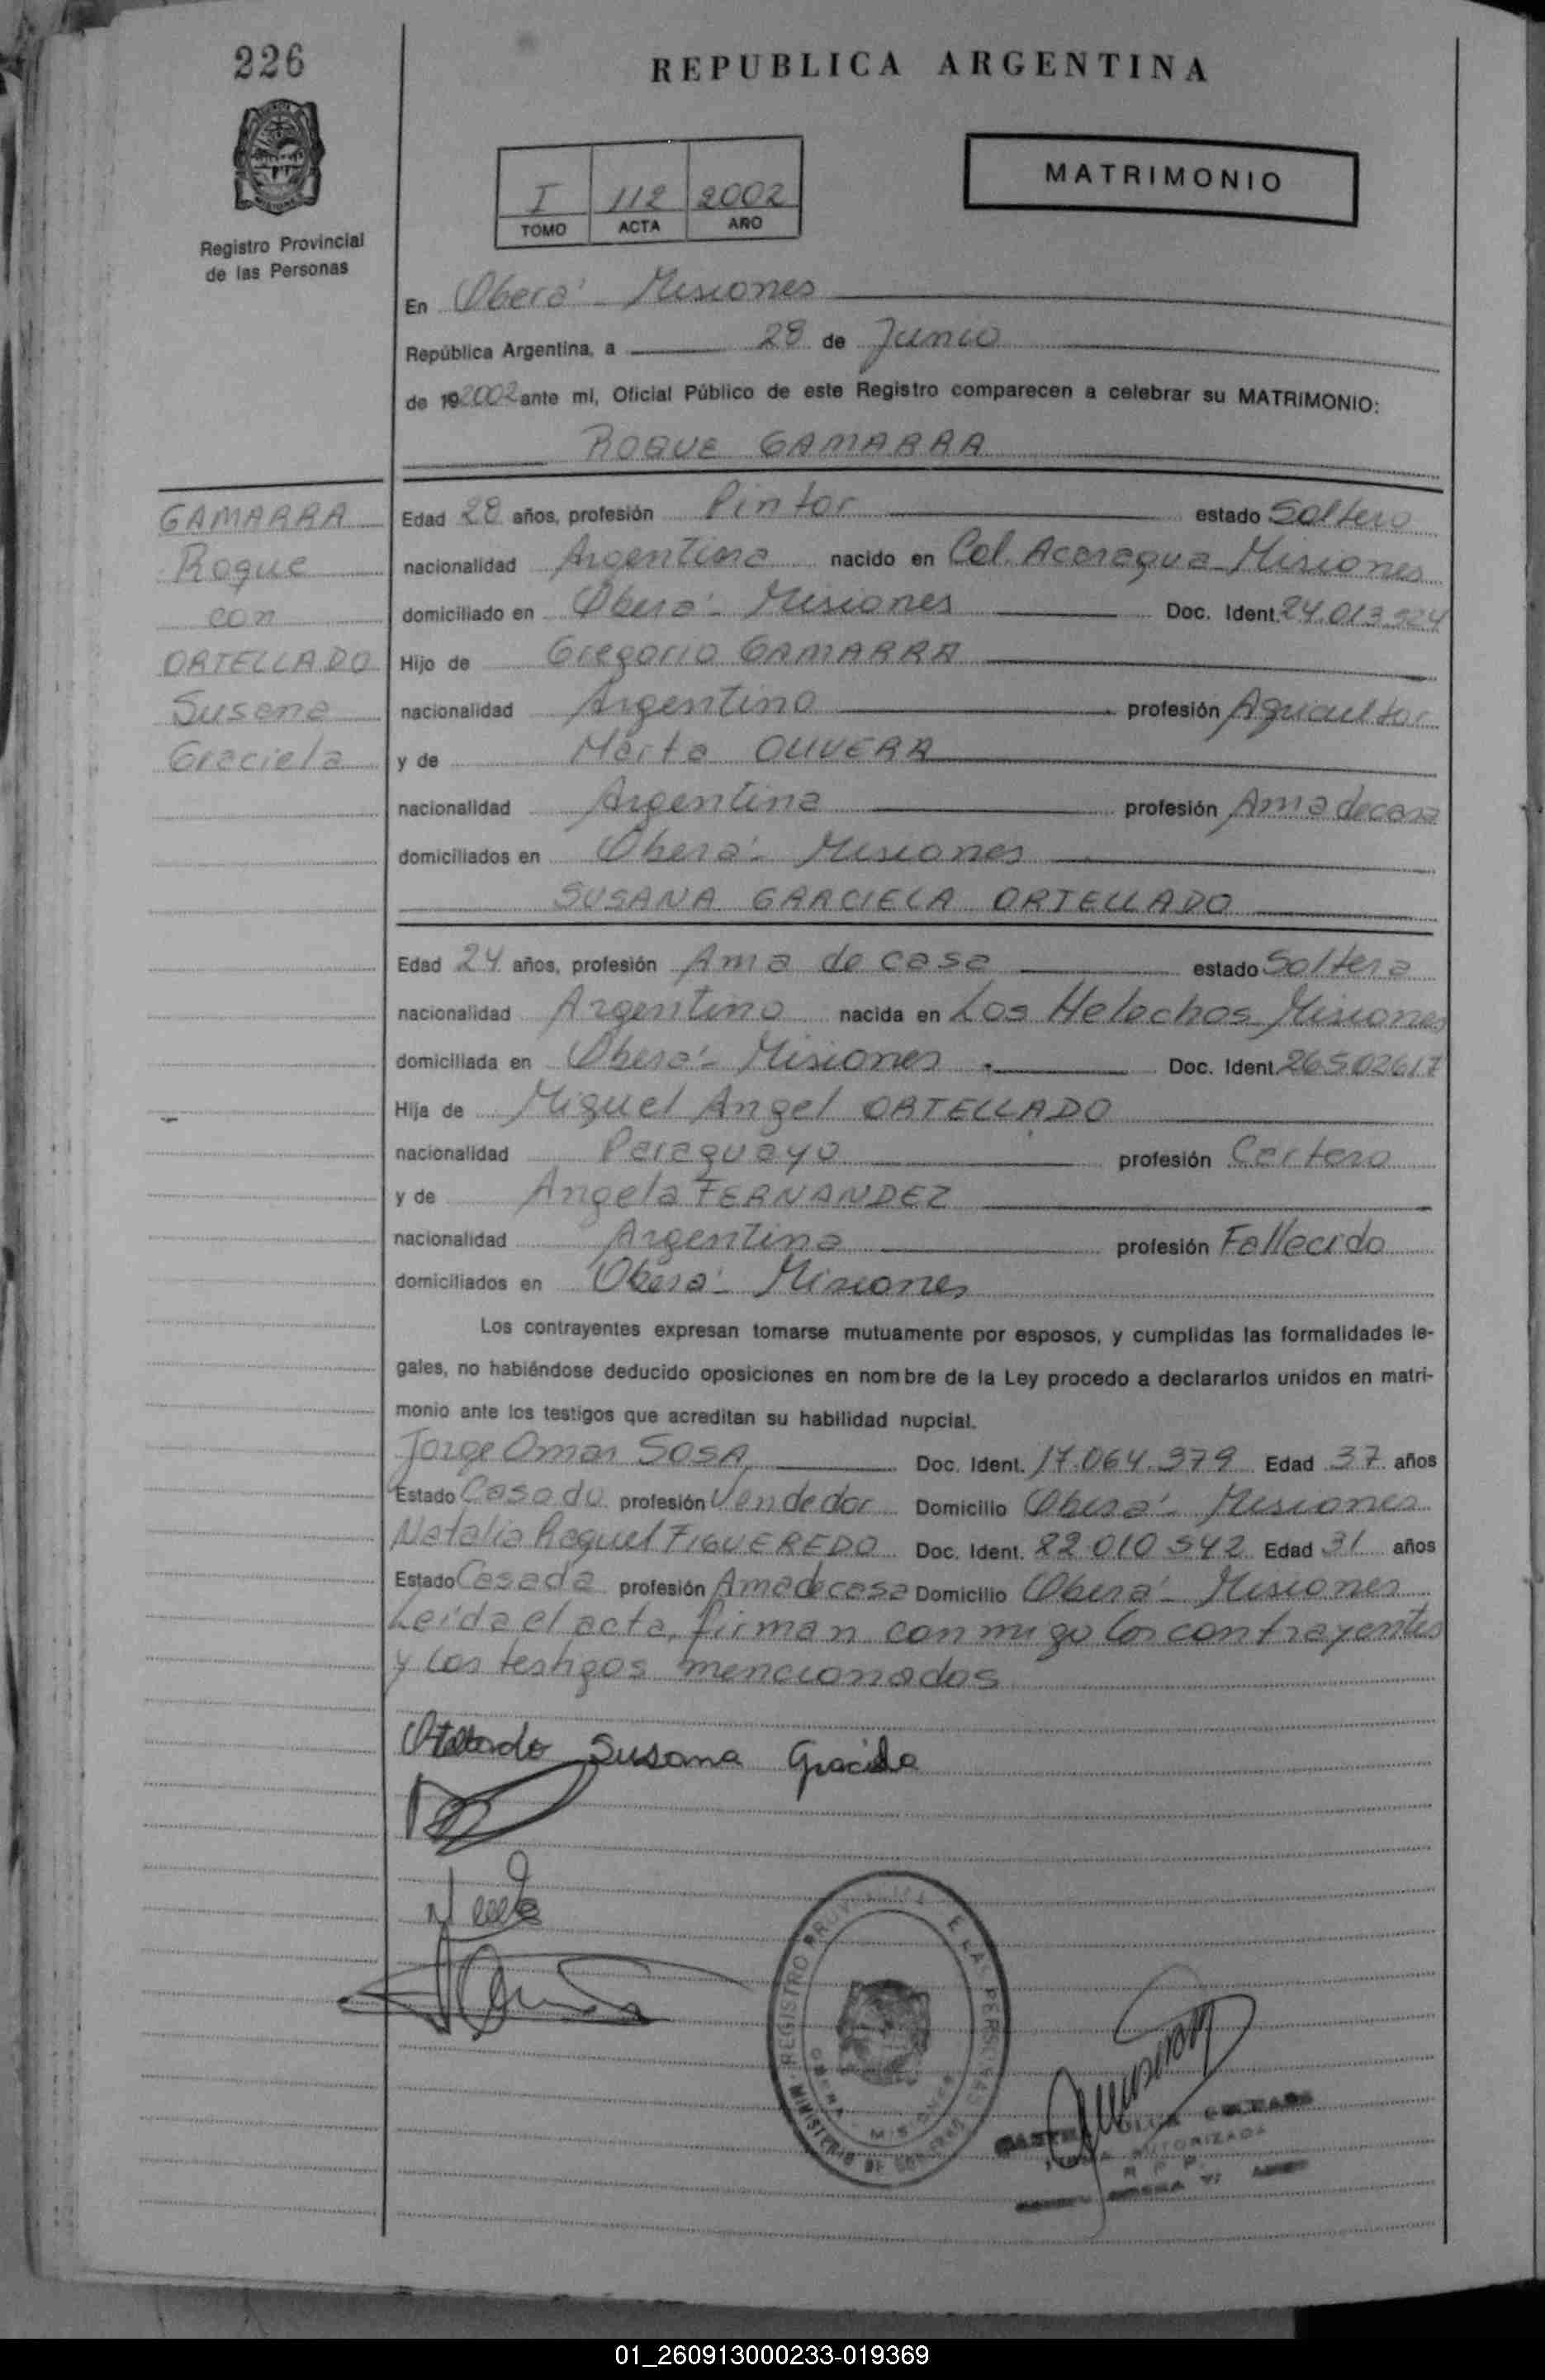 226
REPUBLICA ARGENTINA
MATRIMONIO
I 112 2002
TOMO ACTA AÑO
Registro Provincial
de las Personas
En Oberá - Misiones
República Argentina, a 28 de Junio
de 192002 ante mi, Oficial Público de este Registro comparecen a celebrar su MATRIMONIO:
ROQUE GAMARRA
GAMARRA
Roque
con
ORTELLADO
Susana
Graciela
Edad 28 años, profesión Pintor estado Soltero
nacionalidad Argentina nacido en Col. Acaragua - Misiones
domiciliado en Oberá - Misiones Doc. Ident. 24.013.924
Hijo de Gregorio GAMARRA
nacionalidad Argentino profesión Agricultor
y de Marta OLIVERA
nacionalidad Argentina profesión Ama de casa
domiciliados en Oberá - Misiones
SUSANA GARCIELA ORTELLADO
Edad 24 años, profesión Ama de casa estado Soltera
nacionalidad Argentino nacida en Los Helechos - Misiones
domiciliada en Oberá - Misiones Doc. Ident. 26502617
Hija de Miguel Angel ORTELLADO
nacionalidad Paraguayo profesión Cartero
y de Angela FERNANDEZ
nacionalidad Argentina profesión Fallecida
domiciliados en Oberá - Misiones
Los contrayentes expresan tomarse mutuamente por esposos, y cumplidas las formalidades le-
gales, no habiéndose deducido oposiciones en nombre de la Ley procedo a declararlos unidos en matri-
monio ante los testigos que acreditan su habilidad nupcial.
Jorge Omar SOSA Doc. Ident. 17.064.979 Edad 37 años
Estado Casado profesión Vendedor Domicilio Oberá - Misiones
Natalia Raquel FIGUEREDO Doc. Ident. 22.010.542 Edad 31 años
Estado Casada profesión Ama de casa Domicilio Oberá - Misiones
Leida el acta, firman conmigo los contrayentes
y los testigos mencionados
Ortellado Susana Graciela
REGISTRO PROVINCIAL DE LAS PERSONAS
OBERA - MISIONES
MINISTERIO DE GOBIERNO
AUTORIZADA
01_260913000233-019369